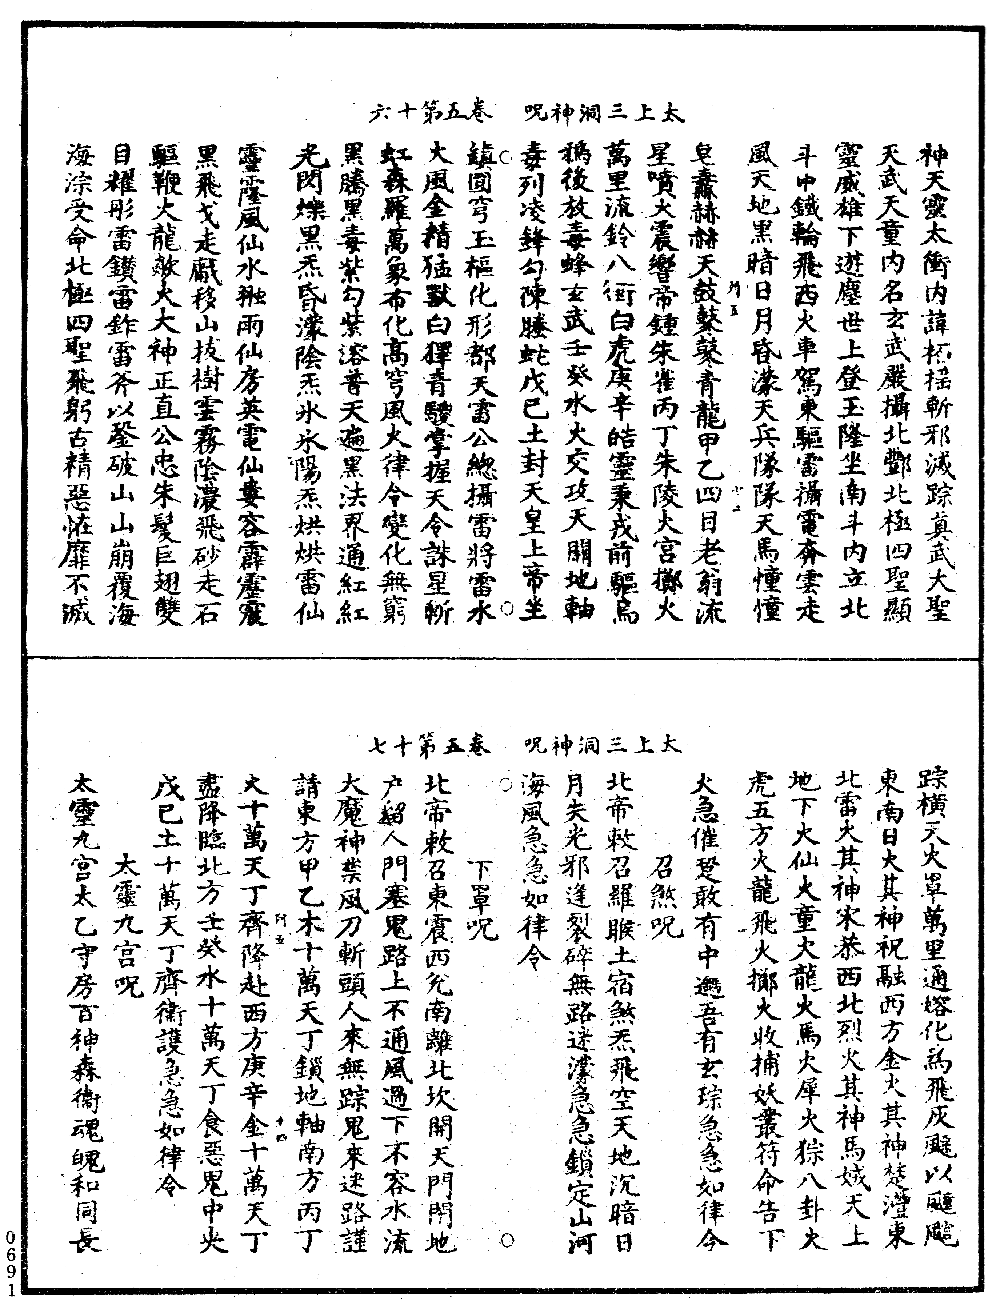 太上三洞神呪　卷五第十六
神天靈太衝內諱杌𣚦斬邪滅踪真武大聖
天武天童內名玄武嚴攝北酆北極四聖顯
靈威雄下遊塵世上登玉隆坐南斗內立北
斗中鐵輪飛西火車駕東驅雷攝電奔雲走
風天地黑暗日月昏濛天兵隊隊天馬憧憧
皂纛赫赫天鼓鼕鼕青龍甲乙四目老翁流
星噴火震響帝鍾朱雀丙丁朱陵火宮擲火
萬里流鈴八衝白虎庚辛皓靈秉戎前驅烏
鴉後放毒蜂玄武壬癸水火交攻天關地軸
毒列凌鋒勾陳螣蛇戊己土封天皇上帝坐
鎮圓穹玉樞化形都天雷公總攝雷將雷水
大風金精猛獸白猙青駿掌握天令誅星斬
虹森羅萬象布化高穹風火律令變化無窮
黑騰黑毒紫勾紫溶普天遍黑法界通紅紅
光閃爍黑炁昏濛陰炁冰冰陽炁烘烘雷仙
靈隆風仙水融雨仙房英電仙妻容霹靂震
黑飛戈走戲移山拔樹雲霧陰濃飛砂走石
驅鞭火龍歘火大神正直公忠朱髮巨翅雙
目耀彤雷鑽雷鉓雷斧以鑿破山山崩覆海
海淙受命北極四聖飛躬古精惡怪靡不滅
太上三洞神呪　卷五第十七
踪橫天火罩萬里通熔化為飛灰颷以颾颾
東南日火其神祝融西方金火其神楚灃東
北雷火其神宋恭西北烈火其神馬娀天上
地下火仙火童火龍火馬火犀火猔八卦火
虎五方火龍飛火擲火收捕妖叢符命告下
火急催楚敢有中邀吾有玄琮急急如律令
召煞呪
北帝敕召羅睺土宿煞炁飛空天地沉暗日
月失光邪逢裂碎無路迷濛急急鎖定山河
海風急急如律令
下罩呪
北帝敕召東震西兌南離北坎開天門閉地
户留人門塞鬼路上不通風過下不容水流
大魔神禁風刀斬頭人來無踪鬼來迷路謹
請東方甲乙木十萬天丁鎖地軸南方丙丁
火十萬天丁齊降赴西方庚辛金十萬天丁
盡降臨北方壬癸水十萬天丁食惡鬼中央
戊己土十萬天丁齊衛護急急如律令
太靈九宮呪
太靈九宮太乙守房百神森衛魂魄和同長
0691